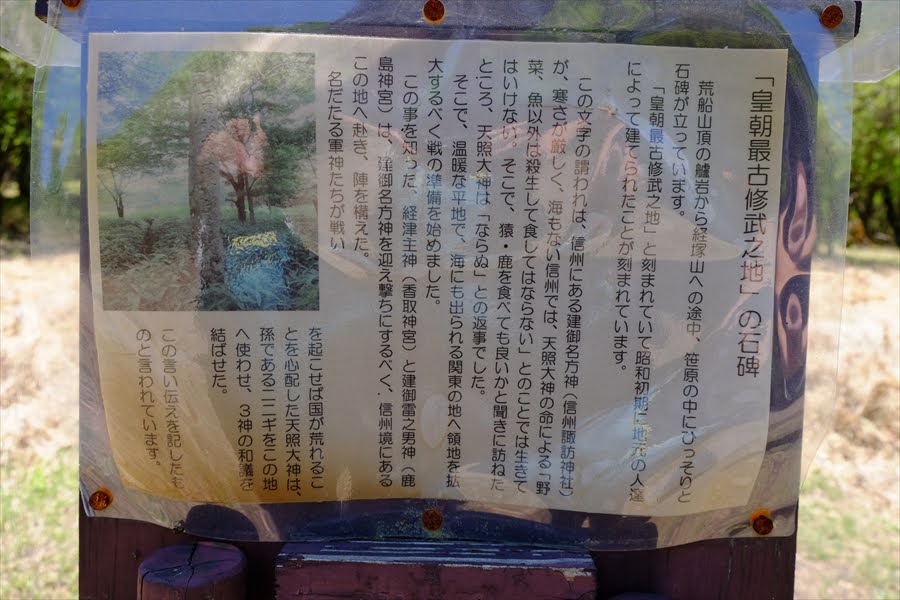 「皇朝最古修武之地」の石碑
荒船山頂の艫岩から経塚山への途中、笹原の中にひっそりと
石碑が立っています。
「皇朝最古修武之地」と刻まれていて昭和初期に地元の人達
によって建てられたことが刻まれています。
この文字の謂われは、信州にある建御名方神（信州諏訪神社）
が、寒さが厳しく、海もない信州では、天照大神の命による「野
菜、魚以外は殺生して食してはならない」とのことでは生きて
はいけない。そこで、猿・鹿を食べても良いかと聞きに訪ねた
ところ、天照大神は「ならぬ」との返事でした。
そこで、温暖な平地で、海にも出られる関東の地へ領地を拡
大するべく戦の準備を始めました。
この事を知った、経津主神（香取神宮）と建御雷之男神（鹿
島神宮）は、建御名方神を迎え撃ちにするべく、信州境にある
この地へ赴き、陣を構えた。
名だたる軍神たちが戦い
を起こせば国が荒れるこ
とを心配した天照大神は、
孫であるニニギをこの地
へ使わせ、３神の和議を
結ばせた。
この言い伝えを記したも
のと言われています。